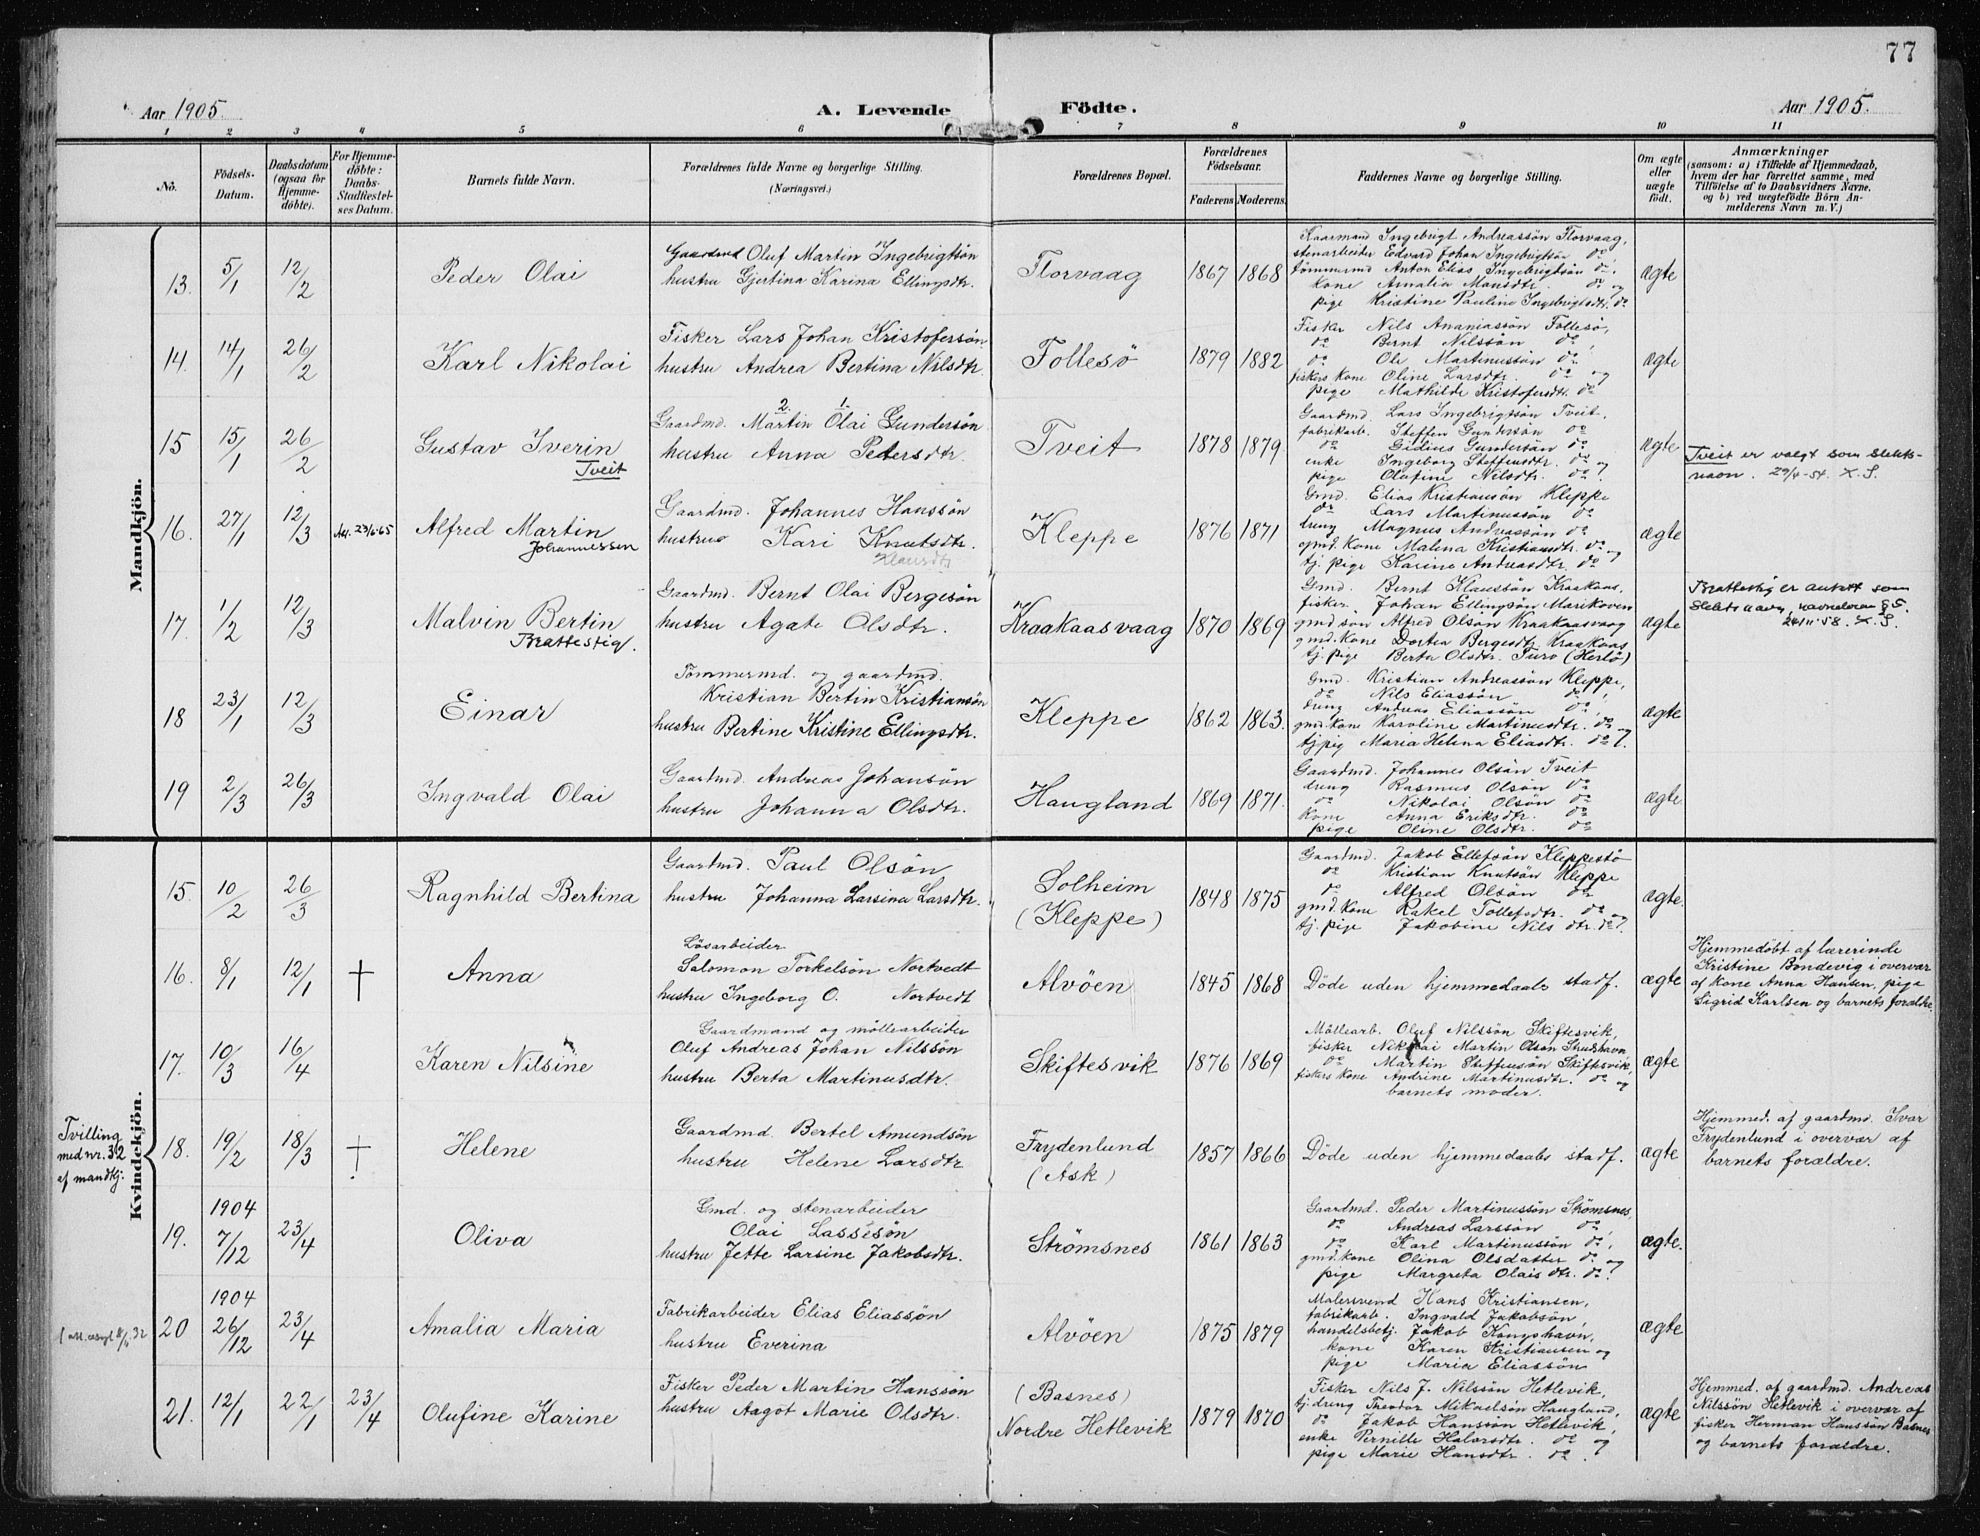 77
Aar 1905.
A. Levende Födte.
Aar 1905.
1 2 3 4 5 6 7 8 9 10 11
No.
Födsels-Datum.
Daabsdatum (ogsaa for Hjemme-döbte).
For Hjemme-döbte: Daabs-Stadfæstel-ses Datum.
Barnets fulde Navn.
Forældrenes fulde Navne og borgerlige Stilling.
(Næringsvei.)
Forældrenes Bopæl.
Forældrenes Födselsaar.
Faderens Moderens
Faddernes Navne og borgerlige Stilling.
Om ægte eller uægte födt.
Anmærkninger
(saasom: a) i Tilfælde af Hjemmedaab,
hvem der har forrettet samme, med
Tilföielse af to Daabsvidners Navne.
og b) ved uægtefödte Börn An-
melderens Navn m. V.)
Mandkjön.
13. 5/1 12/2 Peder Olai
Gaardmd Oluf Martin Ingebrigtsön
hustru Gjertina Karina Ellingsdtr.
Florvaag 1867 1868
Kaarmand Ingebrigt Andreassön Florvaag,
stenarbeider Edvard Johan Ingebrigtsön do,
tömmermd Anton Elias Ingebrigtsön do,
kone Amalia Mansdtr. do og
pige Kristine Pauline Ingebrigtsdtr. do
ægte
14. 14/1 26/2 Karl Nikolai
Fisker Lars Johan Kristofersön
hustru Andrea Bertina Nilsdtr.
Follesö 1879 1882
Fisker Nils Ananiassön Follesö,
do Bernt Nilssön do,
do Ole Martinussön do
fiskers kone Oline Larsdtr. do og
pige Mathilde Kristofersdtr. do
ægte
15 15/1 26/2 Gustav Iverin
Tveit
2. 1.
Gaardmd. Martin Olai Gundersön
hustru Anna Pedersdtr.
Tveit 1878 1879
Gaardmd. Lars Ingebrigtsön Tveit,
fabrikarb. Steffen Gundersön do
do Gidius Gundersön do
enke Ingeborg Steffensdtr. do og
pige Olufine Nilsdtr. do.
ægte
Tveit er valgt som slekts-
navn. 29/4-54. X. S.
16. 27/1 12/3 23/6-65 Alfred Martin
Johannessen
Gaardmd. Johannes Hanssön
hustru Kari Knutsdtr.
Klausdtr
Kleppe 1876 1871
Gmd. Elias Kristiansön Kleppe
do Lars Martinussön do
dreng Magnus Andreassön do
gmd. kone Malena Kristiansdtr. do og
tj. pige Karine Andreasdtr. do
ægte
17. 1/2 12/3 Malvin Bertin
Brattestig.
Gaardmd. Bernt Olai Bergesön
hustru Agate Olsdtr.
Kraakaasvaag 1870 1869
Gmd. Bernt Klaussön Kraakaas,
fisker Johan Ellingsön Marikoven
gmd. sön Alfred Olsön Kraakaasvaag
gmd. kone Dortea Bergesdtr. Kraakaas
tj. pige Berta Olsdtr. Turö (Herlö)
ægte
Brattestig er antatt som
slektsnavn, navneloven § 5.
24/11-58. X. S.
18 23/1 12/3 Einar
Tömmermd. og gaardmd.
Kristian Bertin Kristiansön
hustru Bertine Kristine Ellingsdtr.
Kleppe 1862 1863.
Gmd. Kristian Andreassön Kleppe,
do Nils Eliassön do,
dreng Andreas Eliassön do,
gmd. kone Karoline Martinusdtr. do og
tj pig Maria Helena Eliasdtr. do.
ægte
19 2/3 26/3 Ingvald Olai
Gaardmd. Andreas Johansön
hustru Johanna Olsdtr.
Haugland 1869 1871.
Gaardmd. Johannes Olsön Tveit
dreng Rasmus Olsön do
do Nikolai Olsön do
kone Anna Eriksdtr. do
pige Oline Olsdtr. do
ægte
Kvindekjön.
15. 10/2 26/3 Ragnhild Bertina
Gaardmd. Paul Olsön
hustru Johanna Larsina Larsdtr.
Solheim
(Kleppe)
1848 1875
Gaardmd. Jakob Ellefsön Kleppestö
do Kristian Knutsön Kleppe
do Alfred Olsön do
gmd. kone Rakel Tollefsdtr. do og
tj. pige Jakobine Nils dtr. do.
ægte.
16. 8/1 12/1 † Anna
Lösarbeider
Salomon Torkelsön Nortvedt
hustru Ingeborg O. Nortvedt
Alvöen 1845 1868
Döde uden hjemmedaabs stadf.
ægte
Hjemmedöbt af lærerinde
Kristine Bondevig i overvær
af kone Anna Hansen, pige
Sigrid Karlsen og barnets forældre.
17. 10/3 16/4 Karen Nilsine
Gaardmand og möllearbeider
Oluf Andreas Johan Nilssön
hustru Berta Martinusdtr.
Skiftesvik 1876 1869
Möllearb. Oluf Nilssön Skiftesvik,
fisker Nikolai Martin Olsön Strushavn
do Martin Steffensön Skiftesvik,
fiskers kone Andrine Martinusdtr. do og
barnets moder.
ægte
Tvilling
med nr. 32
af mandkj:
18. 19/2 18/3 † Helene
Gaardmd. Bertel Amundsön
hustru Helene Larsdtr
Frydenlund
(Ask)
1857 1866
Döde uden hjemmedaabs stadf.
ægte
Hjemmed. af gaardmd. Ivar
Frydenlund i overvær af
barnets forældre.
19. 1904 7/12 23/4 Oliva
Gmd. og stenarbeider
Olai Lassesön
hustru Jette Larsine Jakobsdtr.
Strömsnes 1861 1863
Gaardmd. Peder Martinussön Strömsnes,
do Andreas Larssön do,
do Karl Martinussön do,
gmd. kone Olina Olsdatter do og
pige Margreta Olais dtr. do.
ægte.
20 1904 26/12 23/4 Amalia Maria
Fabrikarbeider Elias Eliassön
hustru Everina
Alvöen 1875 1879
Malersvend Hans Kristiansen,
fabrikarb. Ingvald Jakobsön,
handelsbetj. Jakob Kongshavn,
kone Karen Kristiansen og
pige Maria Eliassön
ægte
21. 12/1 22/1 23/4 Olufine Karine
Fisker Peder Martin Hanssön
hustru Aagot Marie Olsdtr.
(Basnes)
Nordre Hetlevik
1879 1870
Fisker Nils J. Nilssön Hetlevik,
tj. dreng Theodor Mikaelsön Haugland,
do Jakob Hanssön Hetlevik,
enke Pernille Halvorsdtr. do og
pige Marie Hansdtr do.
ægte
Hjemmed. af gaardmd. Andreas
Nilssön Hetlevik i overvær af
fisker Herman Hanssön Basnes
og barnets forældre.